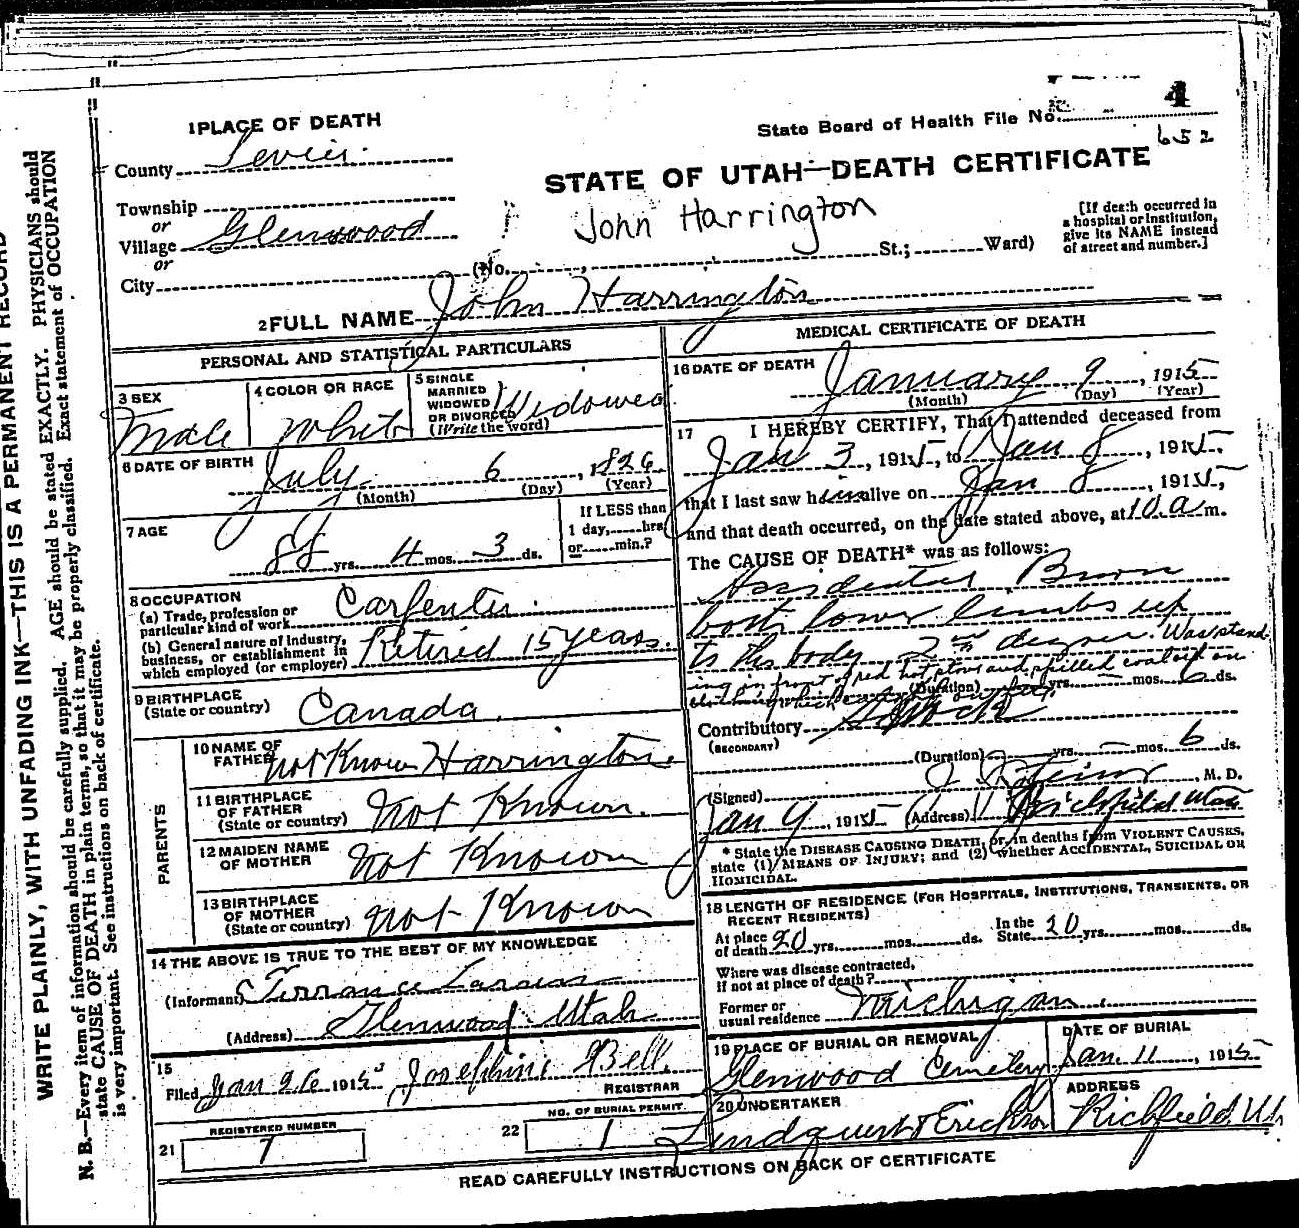 WRITE PLAINLY, WITH UNFADING INK—THIS IS A PERMANENT RECORD
N. B.—Every item of information should be carefully supplied. AGE should be stated EXACTLY. PHYSICIANS should
state CAUSE OF DEATH in plain terms, so that it may be properly classified. Exact statement of OCCUPATION
is very important. See instructions on back of certificate.
1 PLACE OF DEATH
State Board of Health File No. 4
652
County Sevier
STATE OF UTAH—DEATH CERTIFICATE
Township
or
Village Glenwood
or
City
John Harrington
(No. St.; Ward)
[If death occurred in
a hospital or institution,
give its NAME instead
of street and number.]
2 FULL NAME John Harrington
PERSONAL AND STATISTICAL PARTICULARS
3 SEX
Male
4 COLOR OR RACE
White
5 SINGLE
MARRIED
WIDOWED
OR DIVORCED
(Write the word)
Widowed
6 DATE OF BIRTH
July 6, 1826
(Month) (Day) (Year)
7 AGE
88 yrs. 4 mos. 3 ds.
If LESS than
1 day, hrs.
or min.?
8 OCCUPATION
(a) Trade, profession or
particular kind of work Carpenter.
(b) General nature of industry,
business, or establishment in
which employed (or employer) Retired 15 years.
9 BIRTHPLACE
(State or country) Canada.
PARENTS
10 NAME OF
FATHER not Known Harrington.
11 BIRTHPLACE
OF FATHER
(State or country) not Known.
12 MAIDEN NAME
OF MOTHER not Known
13 BIRTHPLACE
OF MOTHER
(State or country) not Known
14 THE ABOVE IS TRUE TO THE BEST OF MY KNOWLEDGE
(Informant)
(Address) Glenwood Utah
15
Filed Jan 26 1915 Josephine Bell.
REGISTRAR
21 REGISTERED NUMBER
22 NO. OF BURIAL PERMIT.
1
MEDICAL CERTIFICATE OF DEATH
16 DATE OF DEATH
January 9, 1915
(Month) (Day) (Year)
17 I HEREBY CERTIFY, That I attended deceased from
Jan 3, 1915, to Jan 8, 1915.
that I last saw him alive on Jan 8, 1915,
and that death occurred, on the date stated above, at 10 a m.
The CAUSE OF DEATH* was as follows:
Accidental Burn
both lower limbs up
to the body 2nd degree. Was stand
ing in front of red hot stove and spilled coal oil on
clothing which
(Duration) yrs. — mos. 6 ds.
Contributory Shock
(SECONDARY)
(Duration) — yrs. — mos. 6 ds.
(Signed) M. D.
Jan 9, 1915 (Address) Richfield Utah
* State the DISEASE CAUSING DEATH, or, in deaths from VIOLENT CAUSES,
state (1) MEANS OF INJURY; and (2) whether ACCIDENTAL, SUICIDAL OR
HOMICIDAL.
18 LENGTH OF RESIDENCE (FOR HOSPITALS, INSTITUTIONS, TRANSIENTS, OR
RECENT RESIDENTS)
At place
of death 20 yrs. mos. ds.
In the
State 20 yrs. mos. ds.
Where was disease contracted,
if not at place of death?
Former or
usual residence Michigan
19 PLACE OF BURIAL OR REMOVAL
Glenwood Cemetery
DATE OF BURIAL
Jan. 11, 1915
20 UNDERTAKER
Lindquist & Erickson
ADDRESS
Richfield, Ut
READ CAREFULLY INSTRUCTIONS ON BACK OF CERTIFICATE